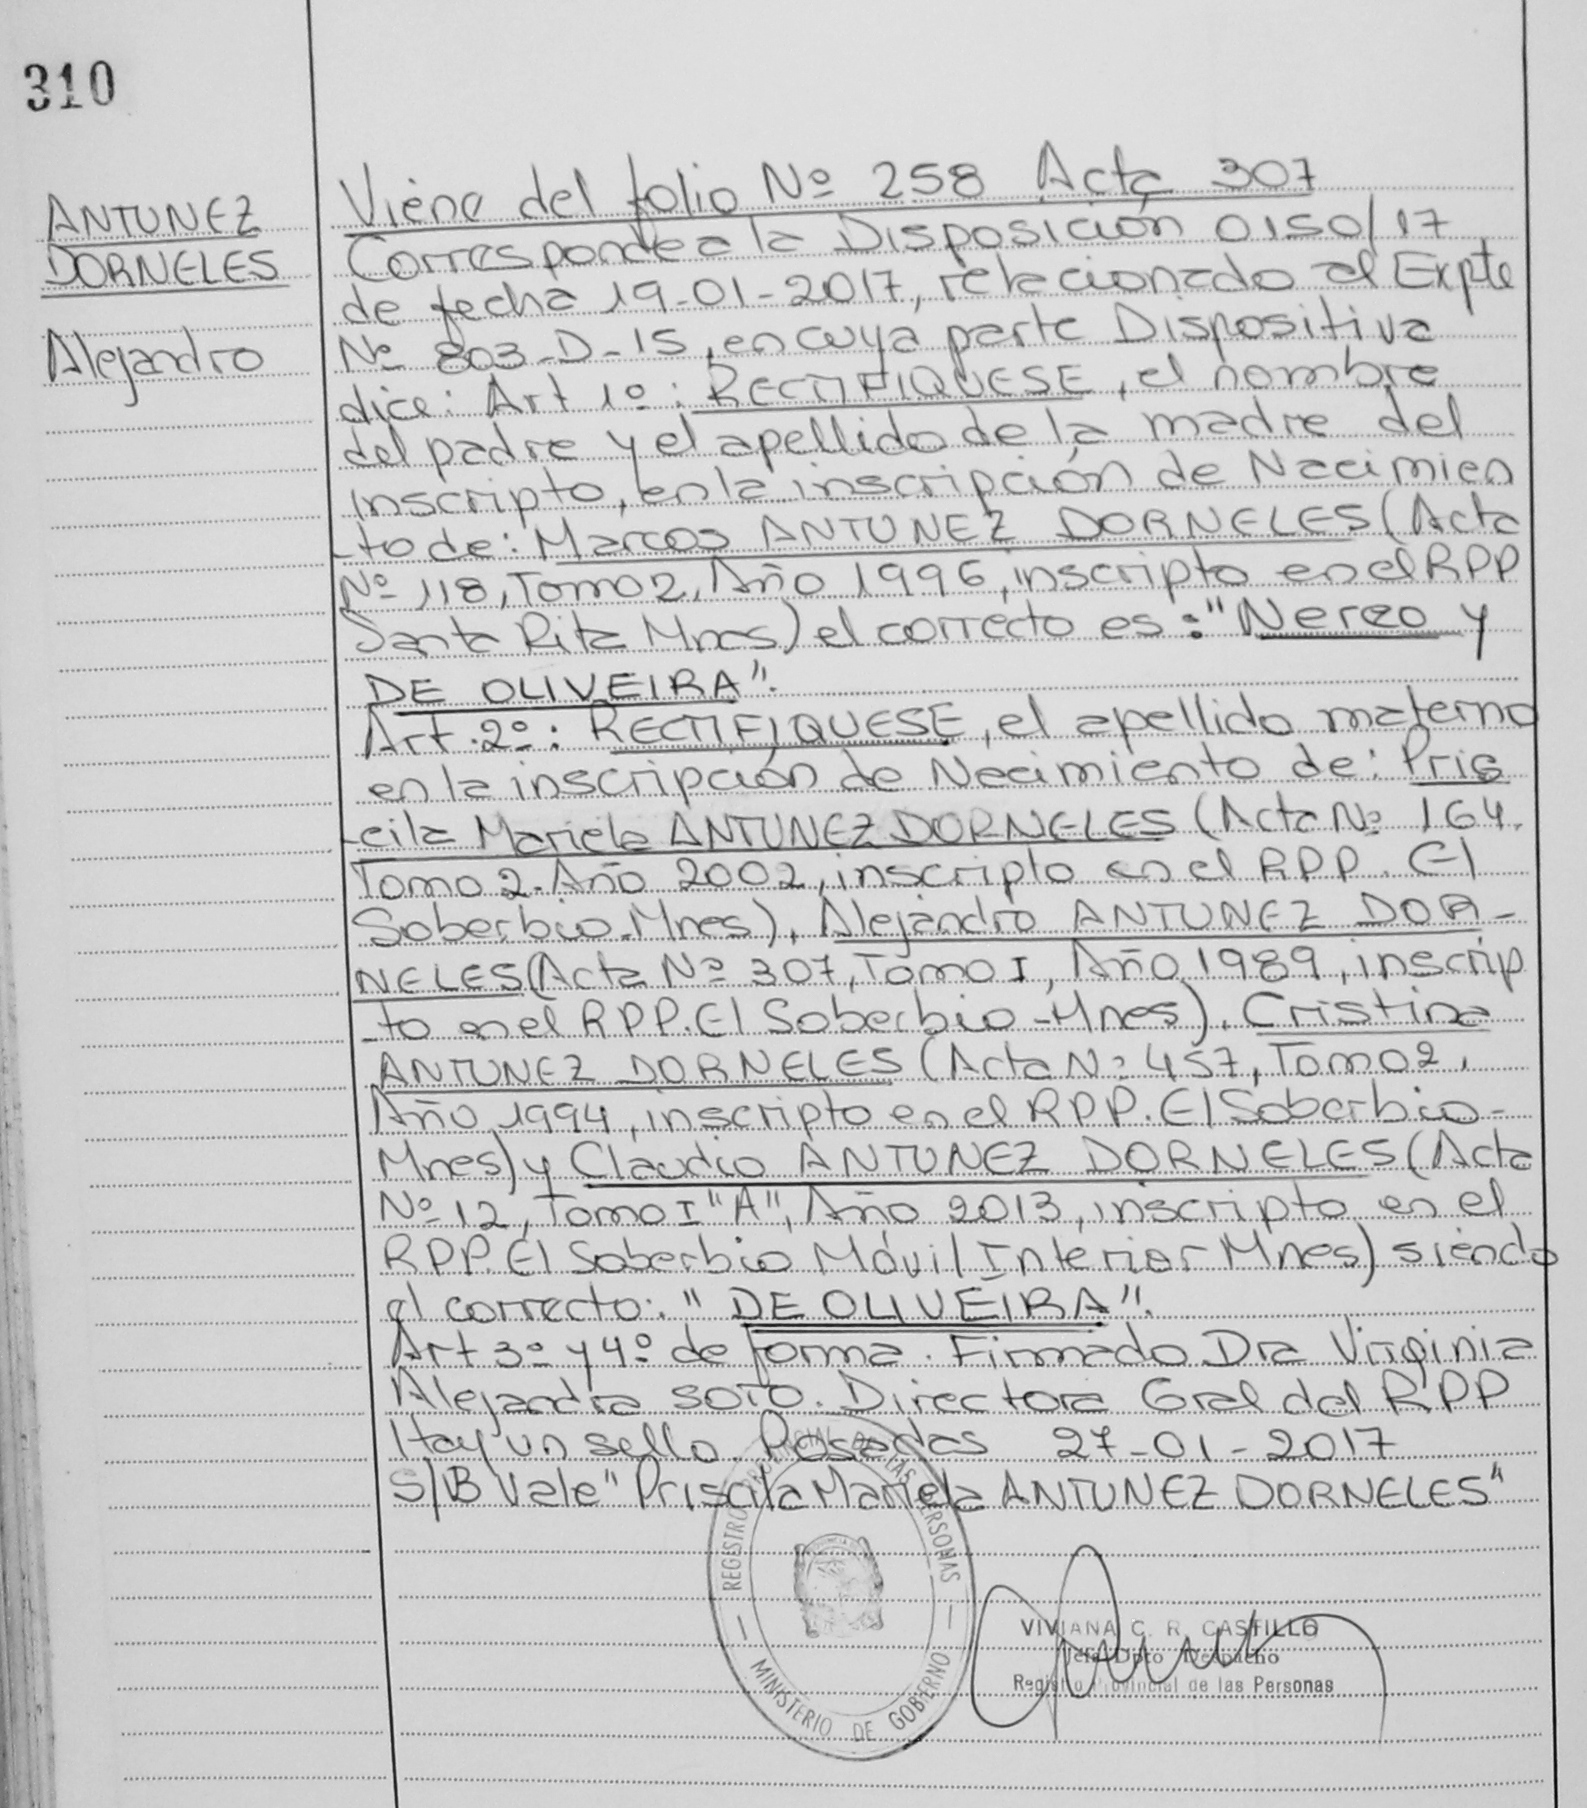 310
ANTUNEZ
DORNELES
Alejandro
Viene del folio Nº 258 Acta 307
Corresponde a la Disposición 0150/17
de fecha 19-01-2017, relacionado al Expte
Nº 803-D-15, en cuya parte Dispositiva
dice: Art 1º: RECTIFIQUESE, el nombre
del padre y el apellido de la madre del
inscripto, en la inscripción de Nacimien
-to de: Marcos ANTUNEZ DORNELES (Acta
Nº 118, Tomo 2, Año 1996, inscripto en el RPP
Santa Rita Mnes) el correcto es: "Nereo y
DE OLIVEIRA".
Art. 2º: RECTIFIQUESE, el apellido materno
en la inscripción de Nacimiento de: Pris
-cila Mariela ANTUNEZ DORNELES (Acta Nº 164.
Tomo 2. Año 2002, inscripto en el RPP. El
Soberbio-Mnes), Alejandro ANTUNEZ DOR-
NELES (Acta Nº 307, Tomo I, Año 1989, inscrip
-to en el RPP. El Soberbio-Mnes), Cristina
ANTUNEZ DORNELES (Acta Nº 457, Tomo 2,
Año 1994, inscripto en el RPP. El Soberbio-
Mnes) y Claudio ANTUNEZ DORNELES (Acta
Nº 12, Tomo I "A", Año 2013, inscripto en el
RPP. El Soberbio Móvil Interior Mnes) siendo
el correcto: "DE OLIVEIRA".
Art 3º y 4º de forma. Firmado Dra Virginia
Alejandra SOTO. Directora Gral del RPP
Hay un sello. Posadas 27-01-2017
S/B Vale "Priscila Mariela ANTUNEZ DORNELES"
REGISTRO PROVINCIAL DE LAS PERSONAS
MINISTERIO DE GOBIERNO
VIVIANA C. R. CASTILLO
Jefa Dpto Despacho
Registro Provincial de las Personas